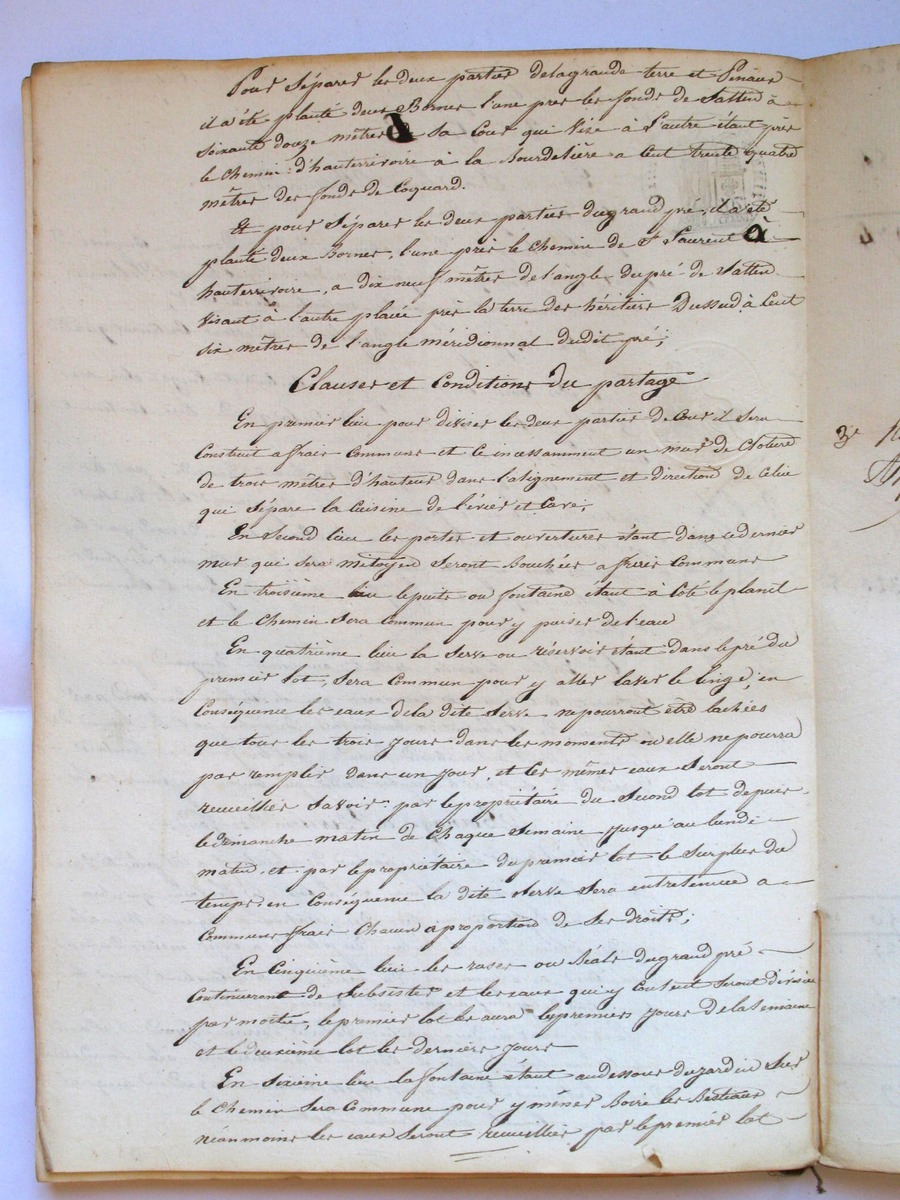 Pour Séparer les deux parties delagrande terre et Pinaux
il a été planté deux Bornes l'une pres les fonds de Sattin à
soixante douze mêtres de sa Cour qui Vise à l'autre étant près
le chemin d'hauterrivoire à la Bourdelière a Cent trente quatre
mêtres des fonds de Coquard.
Et pour Séparer les deux parties dugrand pré, il a été
planté deux Bornes, l'une près le chemin de St Laurent à
hauterrivoire, a dix neuf mêtres de l'angle du pré de Sattin
Visant à l'autre placée près la terre des héritiers Dussud à Cent
six mêtres de l'angle méridionnal dudit pré;
Clauses et Conditions Du partage
En premier lieu pour diviser les deux parties de Cour il Sera
Construit a frais Communs et ce incessamment un mur de Cloture
de trois mêtres d'hauteur dans l'alignement et direction de Celui
qui Sépare la Cuisine de l'évier et Cave;
En Second lieu les portes et ouvertures étant dans cedernier
mur qui sera mitoyen Seront Bouchées a frais Communs
En troisième lieu lepuits ou fontaine étant à Côté le planet
et le chemin Sera Commun pour y puiser del'eau
En quatrième lieu la Serve ou réservoir étant dans lepré du
premier lot, Sera Commun pour y aller laver le linge, en
Conséquence les eaux dela dite Serve nepourront être lachées
que tous les trois jours dans les moments ou elle nepourra
pas remplir dans un jour, et les mêmes eaux Seront
recueillies Savoir: par lepropriétaire du Second lot depuis
ledimanche matin de Chaque Semaine jusqu'au lundi
matin, et par lepropriétaire dupremier lot le Surplus du
temps en Conséquence la dite Serve Sera entretenue a
Communs frais Chacun à proportion de Ses Droits;
En Cinquième lieu les rases ou Béals dugrand pré
Continueront de Subsister et les eaux qui y Coulent Seront divisées
par moitié, lepremier lot les aura les premiers jours de la Semaine
et ledeuxième lot les derniers jours
En sixième lieu la fontaine étant audessous dujardin Sur
le Chemin Sera Commune pour y mêner Boire les Bestiaux
néanmoins les eaux Seront recueillies par lepremier lot
3e